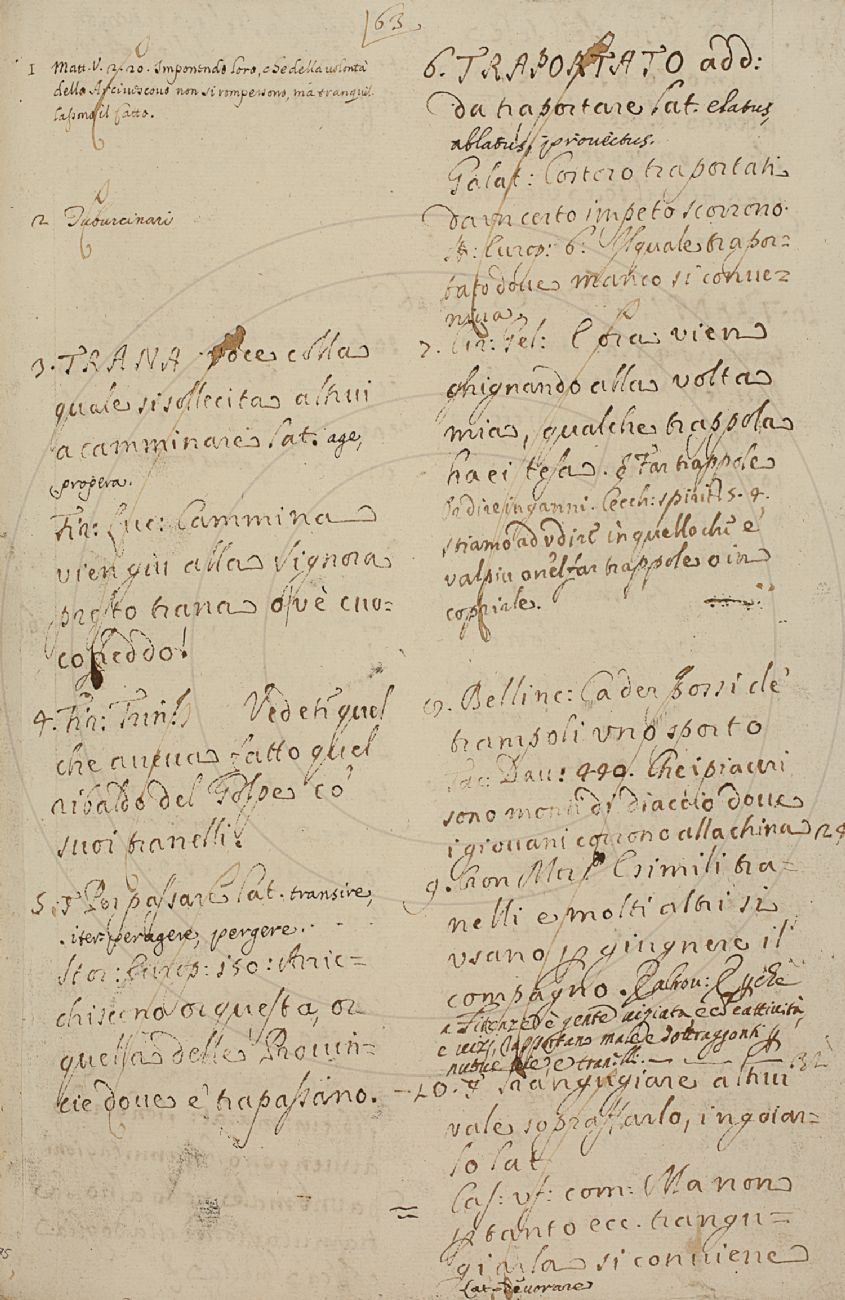 63
1 Matt. V. 2. 20. Imponendo loro, che della volontà
dello Arciuescouo non si rompessono, ma tranquil-
lassono il fatto.
2 Tuburcinari
3. TRANA voce colla
quale si sollecita altrui
a camminare Lat. age,
propera.
Fir: Luc: Cammina
vien giu alla Signora
presto trana o v'è cuo-
co freddo!
4. Fir: Trin: Vedeti quel
che aueua fatto quel
ribaldo del Golpe co'
suoi tranelli.
5. Per passare Lat. transire,
iter peragere, pergere.
Stor: Europ: 150: Arric-
chiscono or questa, or
quella delle Prouin-
cie doue e' trapassano.
6. TRAPORTATO add:
da traportare Lat. elatus,
ablatus, prouectus.
Galat: Costoro traportati
da un certo impeto scorrono
St: Europ: 6: Il quale trapor-
tato doue manco si conue-
niua.
7. Cir: Gel: E sora vien
ghignando alla volta
mia, qualche trappola
ha ei tesa. & Far trappole
Ordire inganni. Cecch: spirit. 5. 4.
stiamo ad vdire in quello che e'
val piu o nel far trappole o in
coprirle.
8. Bellinc: Cader possi de'
trampoli vno sporto
Tac: Dau: 440. Che i piaceri
sono monti di diaccio doue
i giouani corrono alla china 24
9. Cron Mor: E simili tra-
nelli e molti altri si
vsano p giugnere il
compagno.
a Firenze è gente uiziata, e di cattiuità,
e uizj, rapportano male e
nuoue e tranelli. 32
10. Trangugiare altrui
vale sopraffarlo, ingoiar-
lo Lat
Cas: vf: com: Ma non
p tanto ecc. trangu-
giarla si conuiene
Lat. deuorare